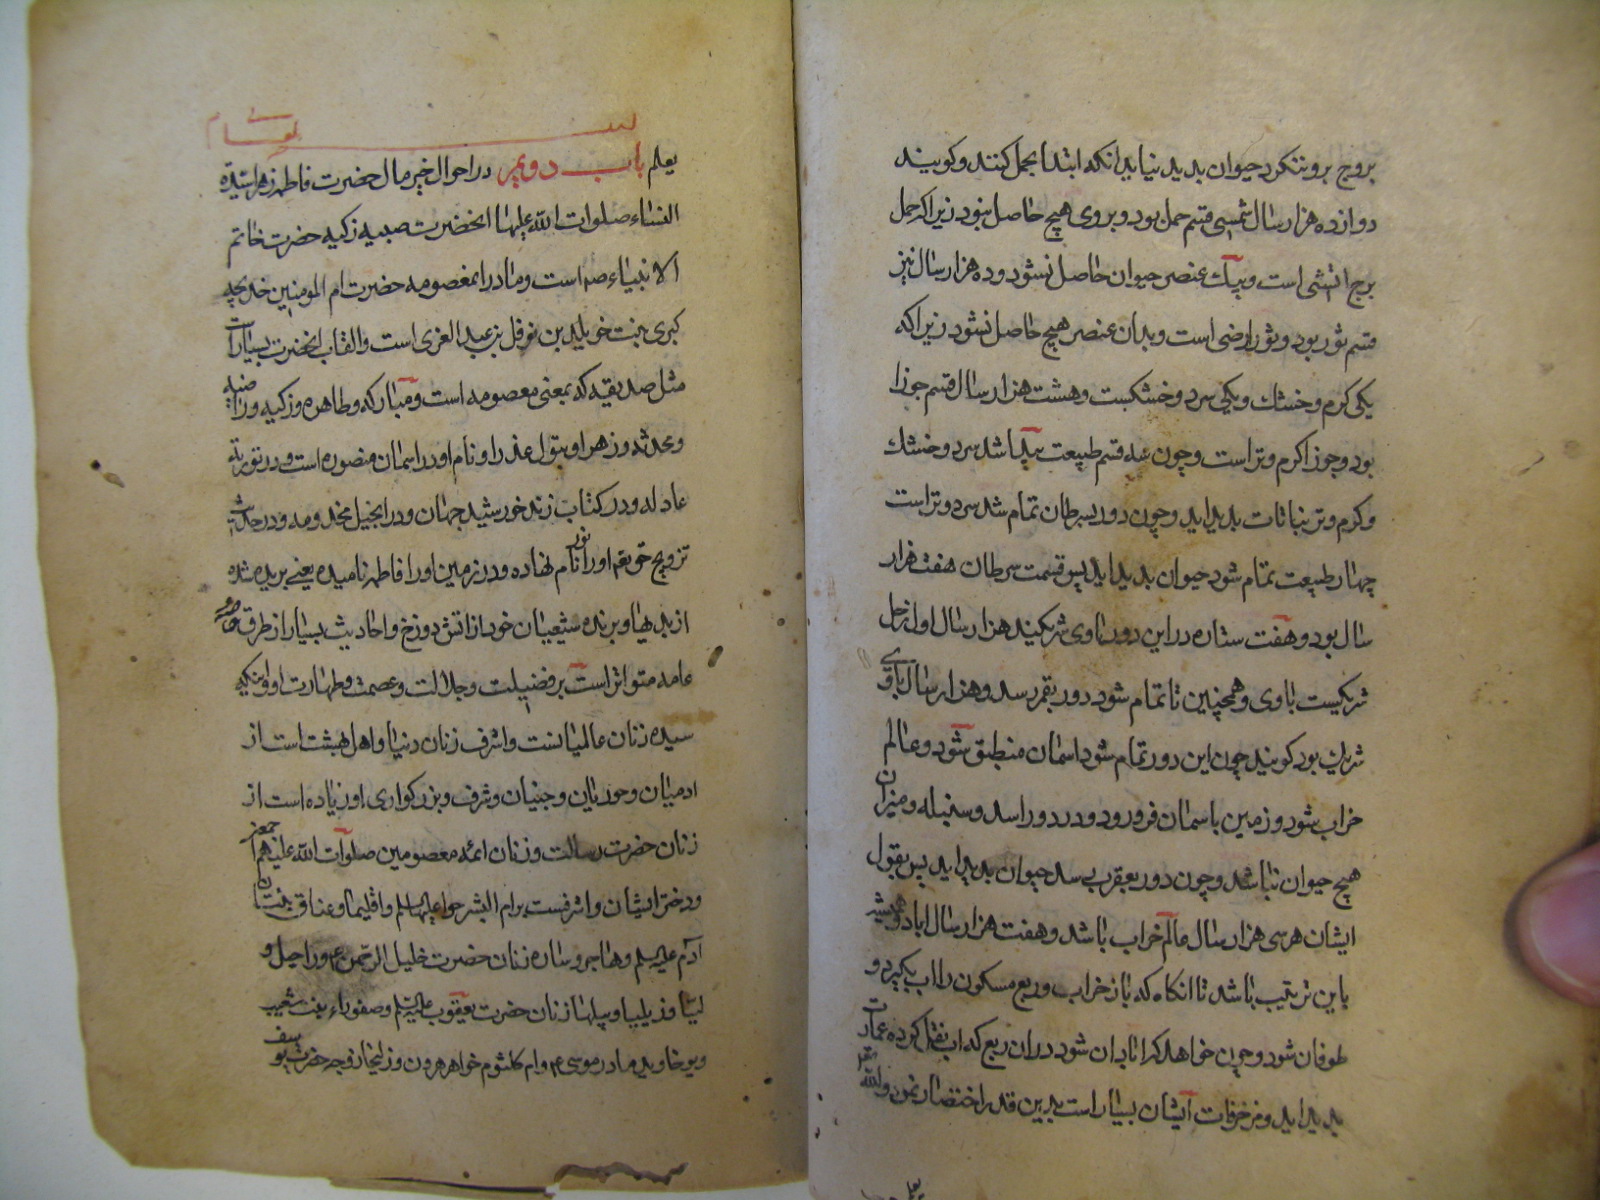 بروج بروننکرد حیوان بدید نیاید انکه ابتدا بحمل کنند و کویند
دوازده هزار سال شمسی قسم حمل بود و بروی هیچ حاصل نبود زیرا که حمل
برج اتشی است و بیک عنصر حیوان حاصل نشود و ده هزار سال نیز
قسم ثور بود و ثور ارضی است و بدان عنصر هیچ حاصل نشود زیرا که
یکی کرم و خشک و یکی سرد و خشکست و هشت هزار سال قسم جوزا
بود و جوزا کرم و تر است و چون سه قسم طبیعت پیدا شد سرد و خشک
و کرم و تر نباتات بدید اید و چون دور بسرطان تمام شد سرد و تر است
چهار طبیعت تمام شود حیوان بدید اید پس قسمت سرطان هفت هزار
سال بود و هفت ستاره در این دور با وی شریکیند هزار سال اول زحل
شریکیست با وی و همچنین تا تمام شود دور بقمر رسد و هزار سال با وی
شریک بود کویند چون این دور تمام شود اسمان منطبق شود و عالم
خراب شود و زمین باسمان فرو رود و در دور اسد و سنبله و میزان
هیچ حیوان نباشد و چون دور بعقرب رسد حیوان بدید اید پس بقول
ایشان هر سی هزار سال عالم خراب باشد و هفت هزار سال اباد و همیشه
باین ترتیب باشد تا انکاه که باز خراب و ربع مسکون را اب بکیرد و
طوفان شود و چون خواهد که ابادان شود در ان ربع که اب نقل کرده عمارت
بدید اید و مزخرفات ایشان بسیار است بدین قدر اختصار نمود والله
یعلم
یعلم باب دویم در احوال خیر مال حضرت فاطمه زهرا سیدة
النساء صلوات الله علیها انحضرت صبیه زکیه حضرت خاتم
الانبیاء صم است و مادر انمعصومه حضرت ام المومنین خدیجه
کبری بنت خویلد بن نوفل بن عبد العزی است و القاب انحضرت بسیار است
مثل صدیقه که بمعنی معصومه است و مبارکه و طاهره و زکیه و راضیه
و محدثه و زهرا و بتول عذرا و نام او در اسمان منصوره است و در توریة
عادله و در کتاب زند خورشید جهان و در انجیل مخدومه و در حدیث
تزویج حقتعم او را نور نام نهاده و در زمین او را فاطمه نامیده یعنی بریده شده
از بدیها و برنده شیعیان خود از اتش دوزخ و احادیث بسیار از طرق خاصه و
عامه متواتر است بر فضیلت و جلالت و عصمت و طهارت او و اینکه
سیده زنان عالمیانست و اشرف زنان دنیا و اهل بهشت است از
ادمیان و حوریان و جنیان و شرف و بزرکواری او زیاده است از
زنان حضرت رسالت و زنان ائمه معصومین صلوات الله علیهم اجمعین
و دختر ایشان و اشرفست بر ام البشر حوا علیها السلم و اقلیما و عناق بنتان
آدم علیه السلم و هاجر و ساره زنان حضرت خلیل الرحمن ع و راحیل و
لیا و زیلیا و بیلها زنان حضرت یعقوب علیه السلم و صفوراء بنت شعیب
و یوخاوید مادر موسی ع و ام کلثوم خواهر هرون و زلیخا زوجه حضرت یوسف